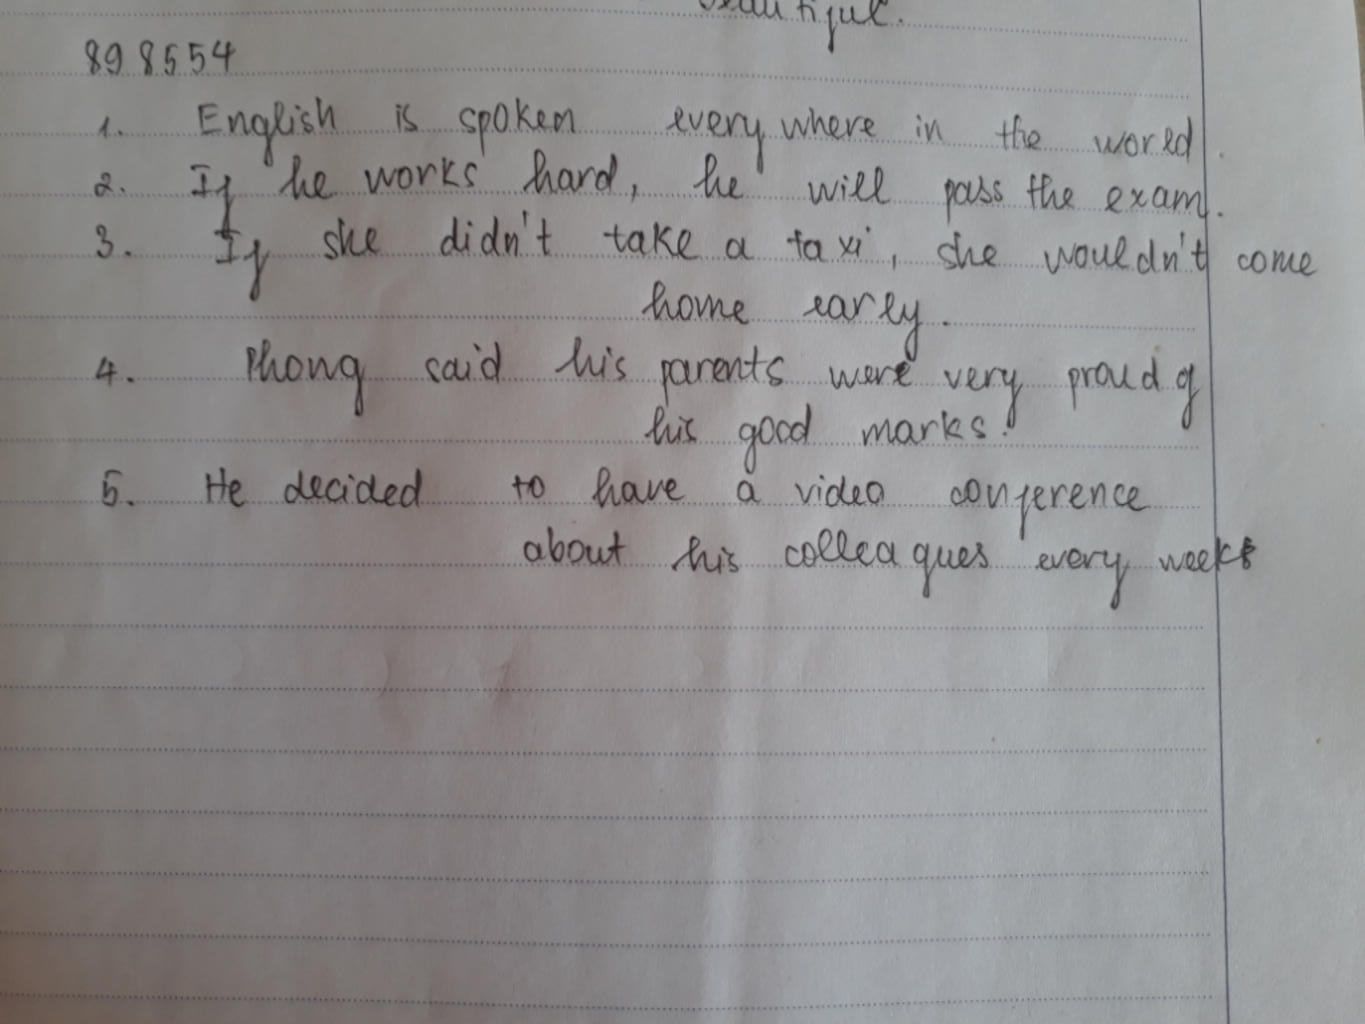 beautiful.
898554
1. English is spoken everywhere in the world.
2. If he works hard, he will pass the exam.
3. If she didn't take a taxi, she wouldn't come
home early.
4. Phong said his parents were very proud of
his good marks.
5. He decided to have a video conference
about his colleagues every weeks